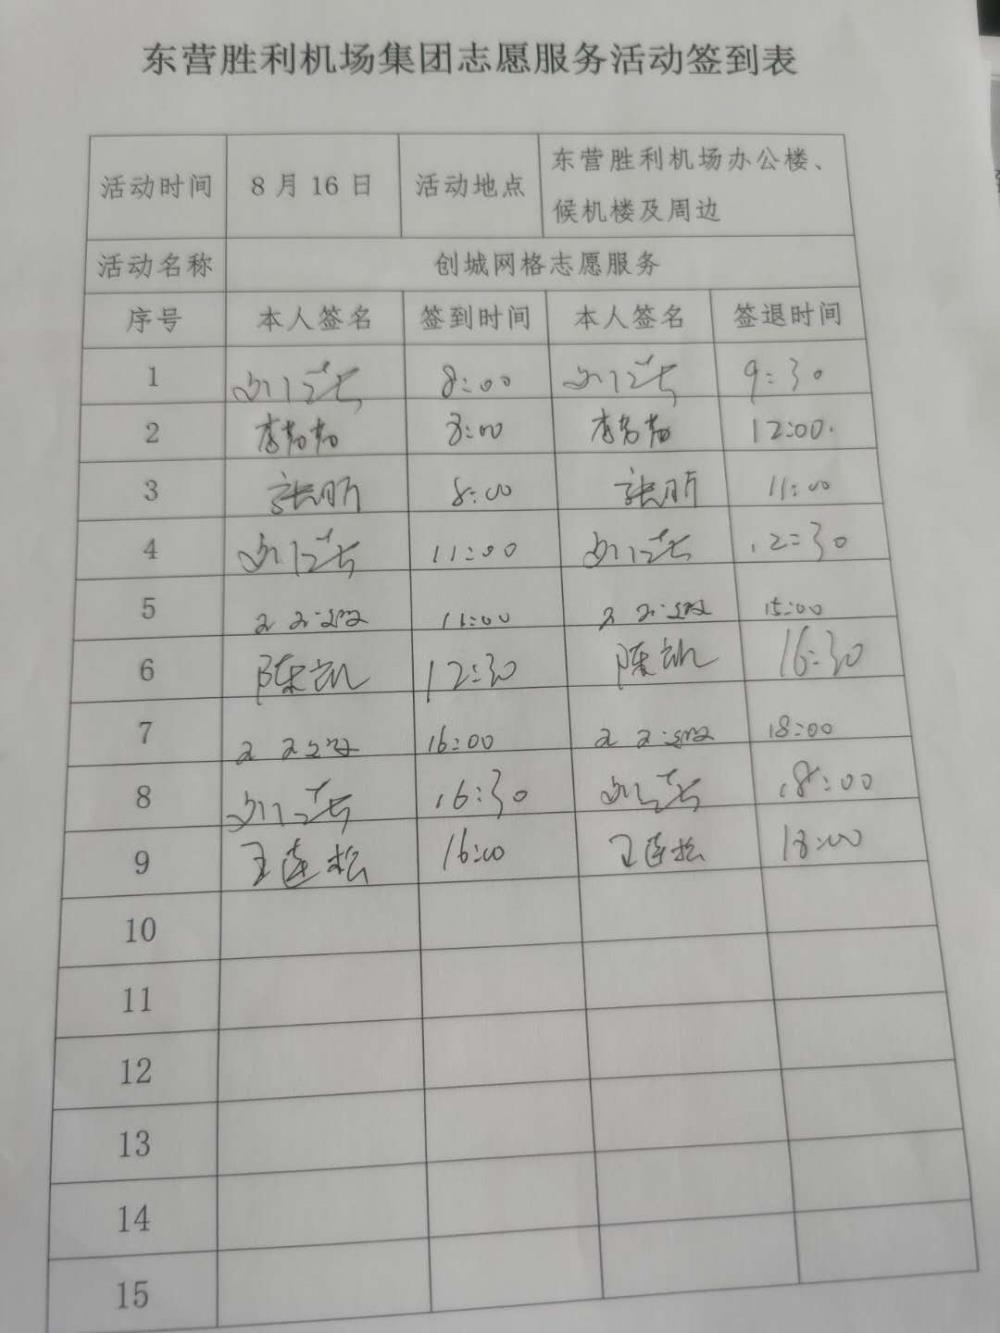 东营胜利机场集团志愿服务活动签到表
活动时间 8月16日 活动地点 东营胜利机场办公楼、
候机楼及周边
活动名称 创城网格志愿服务
序号 本人签名 签到时间 本人签名 签退时间
1 8:00 9:30
2 8:00 12:00
3 张昕 8:00 张昕 11:00
4 11:00 12:30
5 11:00 15:00
6 陈凯 12:30 陈凯 16:30
7 16:00 18:00
8 16:30 18:00
9 王连松 16:00 王连松 18:00
10
11
12
13
14
15